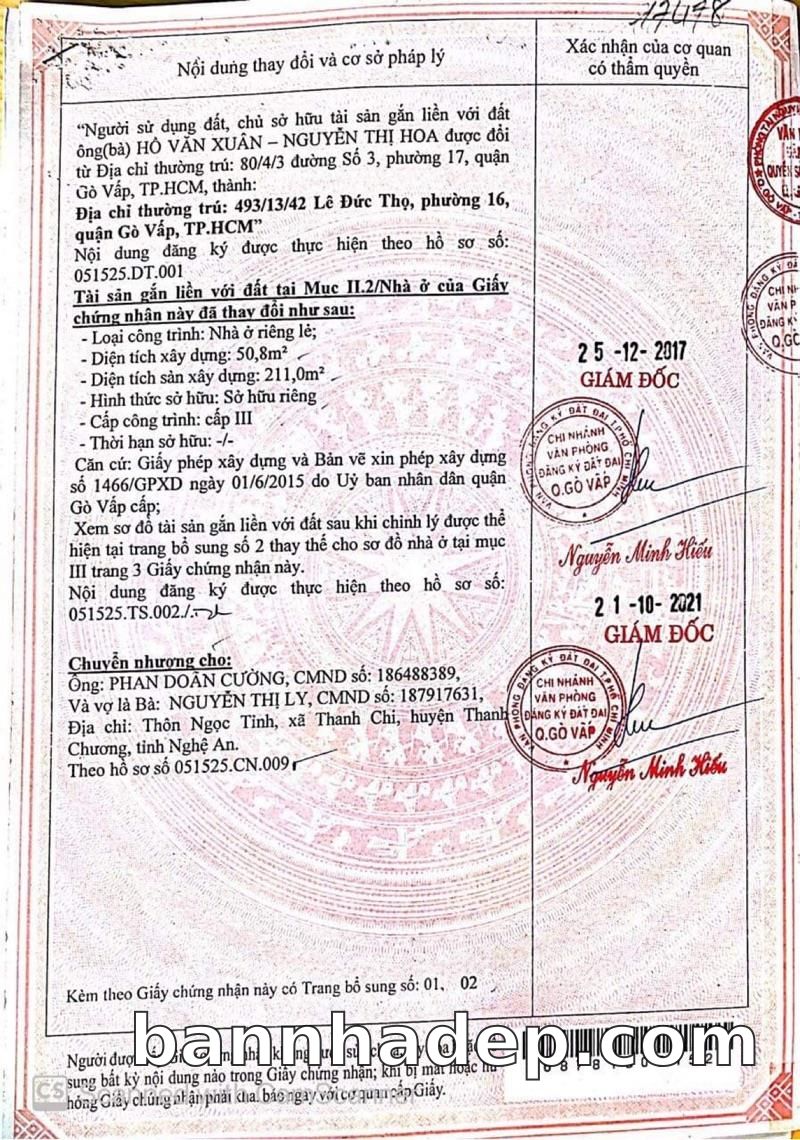 17478
Nội dung thay đổi và cơ sở pháp lý
Xác nhận của cơ quan
có thẩm quyền
"Người sử dụng đất, chủ sở hữu tài sản gắn liền với đất
ông(bà) HỒ VĂN XUÂN – NGUYỄN THỊ HOA được đổi
từ Địa chỉ thường trú: 80/4/3 đường Số 3, phường 17, quận
Gò Vấp, TP.HCM, thành:
Địa chỉ thường trú: 493/13/42 Lê Đức Thọ, phường 16,
quận Gò Vấp, TP.HCM"
Nội dung đăng ký được thực hiện theo hồ sơ số:
051525.DT.001
Tài sản gắn liền với đất tại Mục II.2/Nhà ở của Giấy
chứng nhận này đã thay đổi như sau:
- Loại công trình: Nhà ở riêng lẻ;
- Diện tích xây dựng: 50,8m²
- Diện tích sàn xây dựng: 211,0m²
- Hình thức sở hữu: Sở hữu riêng
- Cấp công trình: cấp III
- Thời hạn sở hữu: -/-
Căn cứ: Giấy phép xây dựng và Bản vẽ xin phép xây dựng
số 1466/GPXD ngày 01/6/2015 do Uỷ ban nhân dân quận
Gò Vấp cấp;
Xem sơ đồ tài sản gắn liền với đất sau khi chỉnh lý được thể
hiện tại trang bổ sung số 2 thay thế cho sơ đồ nhà ở tại mục
III trang 3 Giấy chứng nhận này.
Nội dung đăng ký được thực hiện theo hồ sơ số:
051525.TS.002./.
25-12-2017
GIÁM ĐỐC
VĂN PHÒNG ĐĂNG KÝ ĐẤT ĐAI TP.HỒ CHÍ MINH
CHI NHÁNH
VĂN PHÒNG
ĐĂNG KÝ ĐẤT ĐAI
Q.GÒ VẤP
Nguyễn Minh Hiếu
Chuyển nhượng cho:
Ông: PHAN DOÃN CƯỜNG, CMND số: 186488389,
Và vợ là Bà: NGUYỄN THỊ LY, CMND số: 187917631,
Địa chỉ: Thôn Ngọc Tinh, xã Thanh Chi, huyện Thanh
Chương, tỉnh Nghệ An.
Theo hồ sơ số 051525.CN.009
21-10-2021
GIÁM ĐỐC
VĂN PHÒNG ĐĂNG KÝ ĐẤT ĐAI TP.HỒ CHÍ MINH
CHI NHÁNH
VĂN PHÒNG
ĐĂNG KÝ ĐẤT ĐAI
Q.GÒ VẤP
Nguyễn Minh Hiếu
Kèm theo Giấy chứng nhận này có Trang bổ sung số: 01, 02
bannhadep.com.vn
Người được
sung bất kỳ nội dung nào trong Giấy chứng nhận; khi bị mất hoặc hư
hỏng Giấy chứng nhận phải khai báo ngay với cơ quan cấp Giấy.
CS Scanned with CamScanner